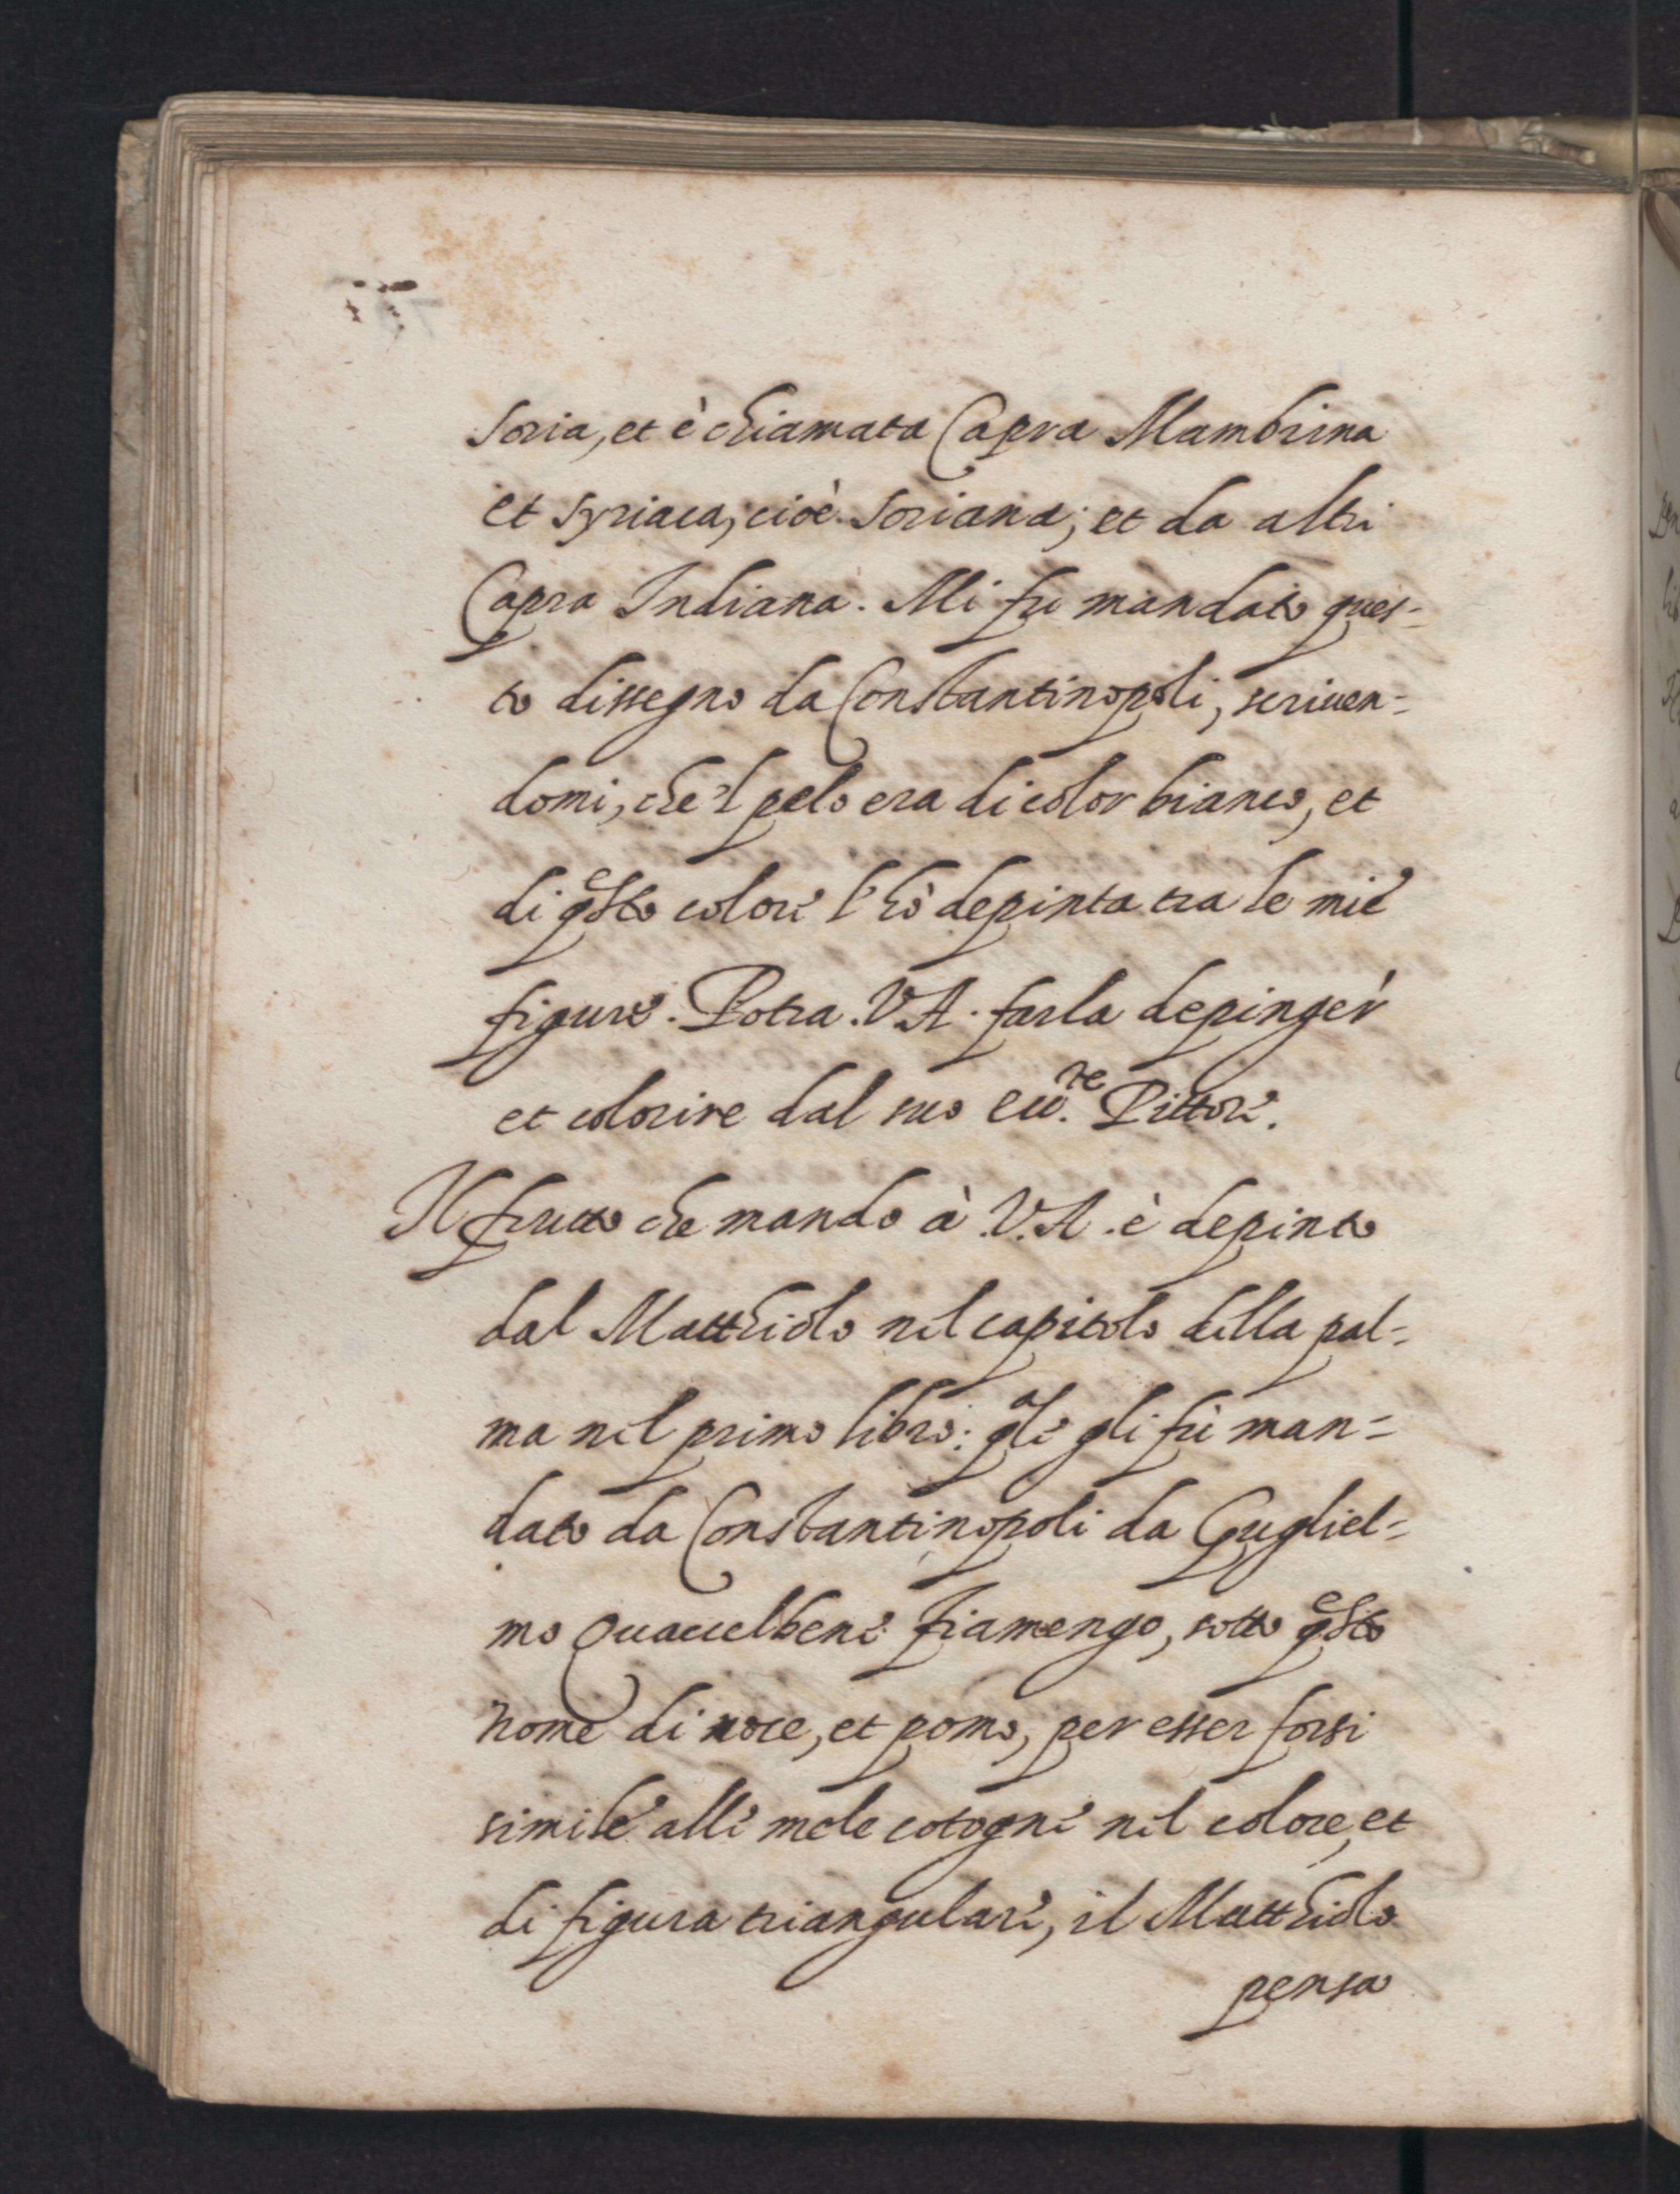 Soria, et è chiamata Capra Mambrina
et Syriaca, cioè Soriana; et da altri
Capra Indiana. Mi fu mandato ques-
to dissegno da Constantinopoli, scriuen-
domi, che'l pelo era di color bianco, et
di qsto colore l'hò depinta tra le mie
figure. Potra .V.A. farla depinger
et colorire dal suo ecc.te Pittore.
Il frutto che mando à .V.A. è depinto
dal Matthiolo nel capitolo della pal-
ma nel primo libro: qle gli fù man-
dato da Constantinopoli da Gugliel-
mo Quaccelbene fiamengo, sotto qsto
nome di noce, et pomo, per esser forsi
simile alle mele cotogne nel colore, et
di figura triangulare, il Matthiolo
pensa